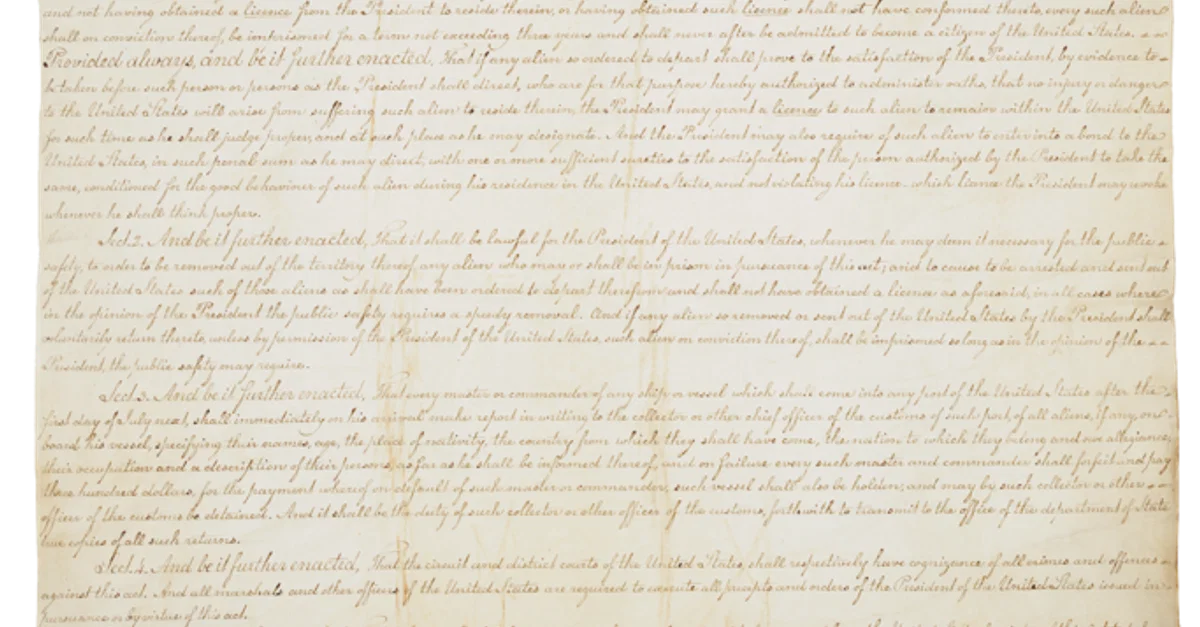 and not having obtained a licence from the President to reside therein, or having obtained such licence shall not have conformed thereto, every such alien
shall on conviction thereof, be imprisoned for a term not exceeding three years and shall never after be admitted to become a citizen of the United States.
Provided always, and be it further enacted, That if any alien so ordered to depart shall prove to the satisfaction of the President, by evidence to
be taken before such person or persons as the President shall direct, who are for that purpose hereby authorized to administer oaths, that no injury or danger
to the United States will arise from suffering such alien to reside therein, the President may grant a licence to such alien to remain within the United States
for such time as he shall judge proper, and at such place as he may designate. And the President may also require of such alien to enter into a bond to the
United States, in such penal sum as he may direct, with one or more sufficient sureties to the satisfaction of the person authorized by the President to take the
same, conditioned for the good behaviour of such alien during his residence in the United States, and not violating his licence, which licence the President may revoke
whenever he shall think proper.
Sect. 2. And be it further enacted, That it shall be lawful for the President of the United States, whenever he may deem it necessary for the public
safety, to order to be removed out of the territory thereof, any alien who may or shall be in prison in pursuance of this act; and to cause to be arrested and sent out
of the United States such of those aliens as shall have been ordered to depart therefrom and shall not have obtained a licence as aforesaid, in all cases where
in the opinion of the President the public safety requires a speedy removal. And if any alien so removed or sent out of the United States by the President shall
voluntarily return thereto, unless by permission of the President of the United States, such alien on conviction thereof, shall be imprisoned so long as in the opinion of the
President, the public safety may require.
Sect. 3. And be it further enacted, That every master or commander of any ship or vessel which shall come into any port of the United States after the
first day of July next, shall immediately on his arrival make report in writing to the collector or other chief officer of the customs of such port, of all aliens, if any, on
board his vessel, specifying their names, age, the place of nativity, the country from which they shall have come, the nation to which they belong and owe allegiance,
their occupation and a description of their persons, as far as he shall be informed thereof, and on failure every such master and commander shall forfeit and pay
three hundred dollars, for the payment whereof on default of such master or commander, such vessel shall also be holden, and may by such collector or other
officer of the customs be detained. And it shall be the duty of such collector or other officer of the customs, forthwith to transmit to the office of the department of State
true copies of all such returns.
Sect. 4. And be it further enacted, That the circuit and district courts of the United States, shall respectively have cognizance of all crimes and offences
against this act. And all marshals and other officers of the United States are required to execute all precepts and orders of the President of the United States issued in
pursuance or by virtue of this act.